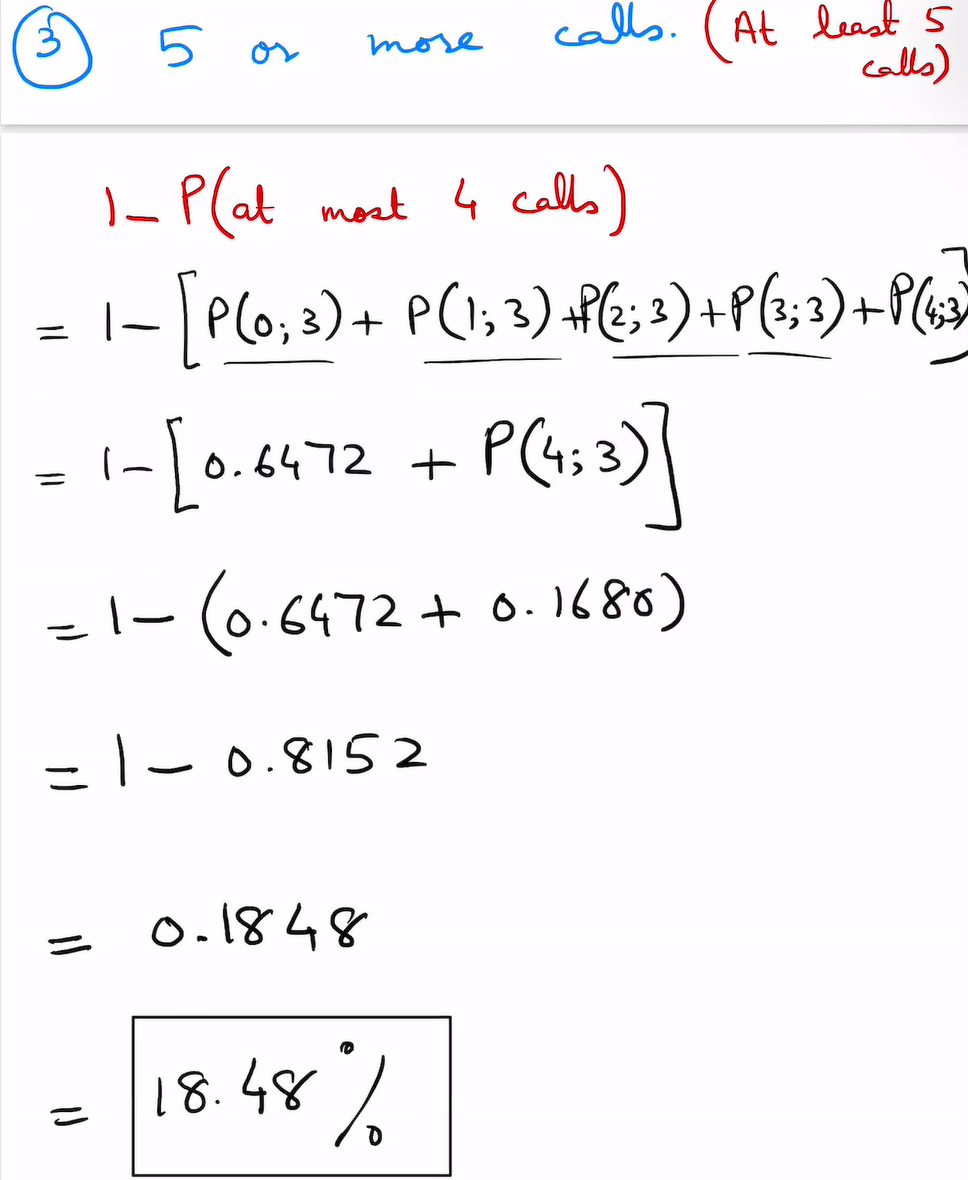 3 5 or more calls. (At least 5
calls)
1-P(at most 4 calls)
= 1-[P(0;3)+ P(1;3)+P(2;3)+P(3;3)+P(4;3)]
= 1-[0.6472 + P(4;3)]
= 1-(0.6472+0.1680)
= 1-0.8152
= 0.1848
= 18.48%